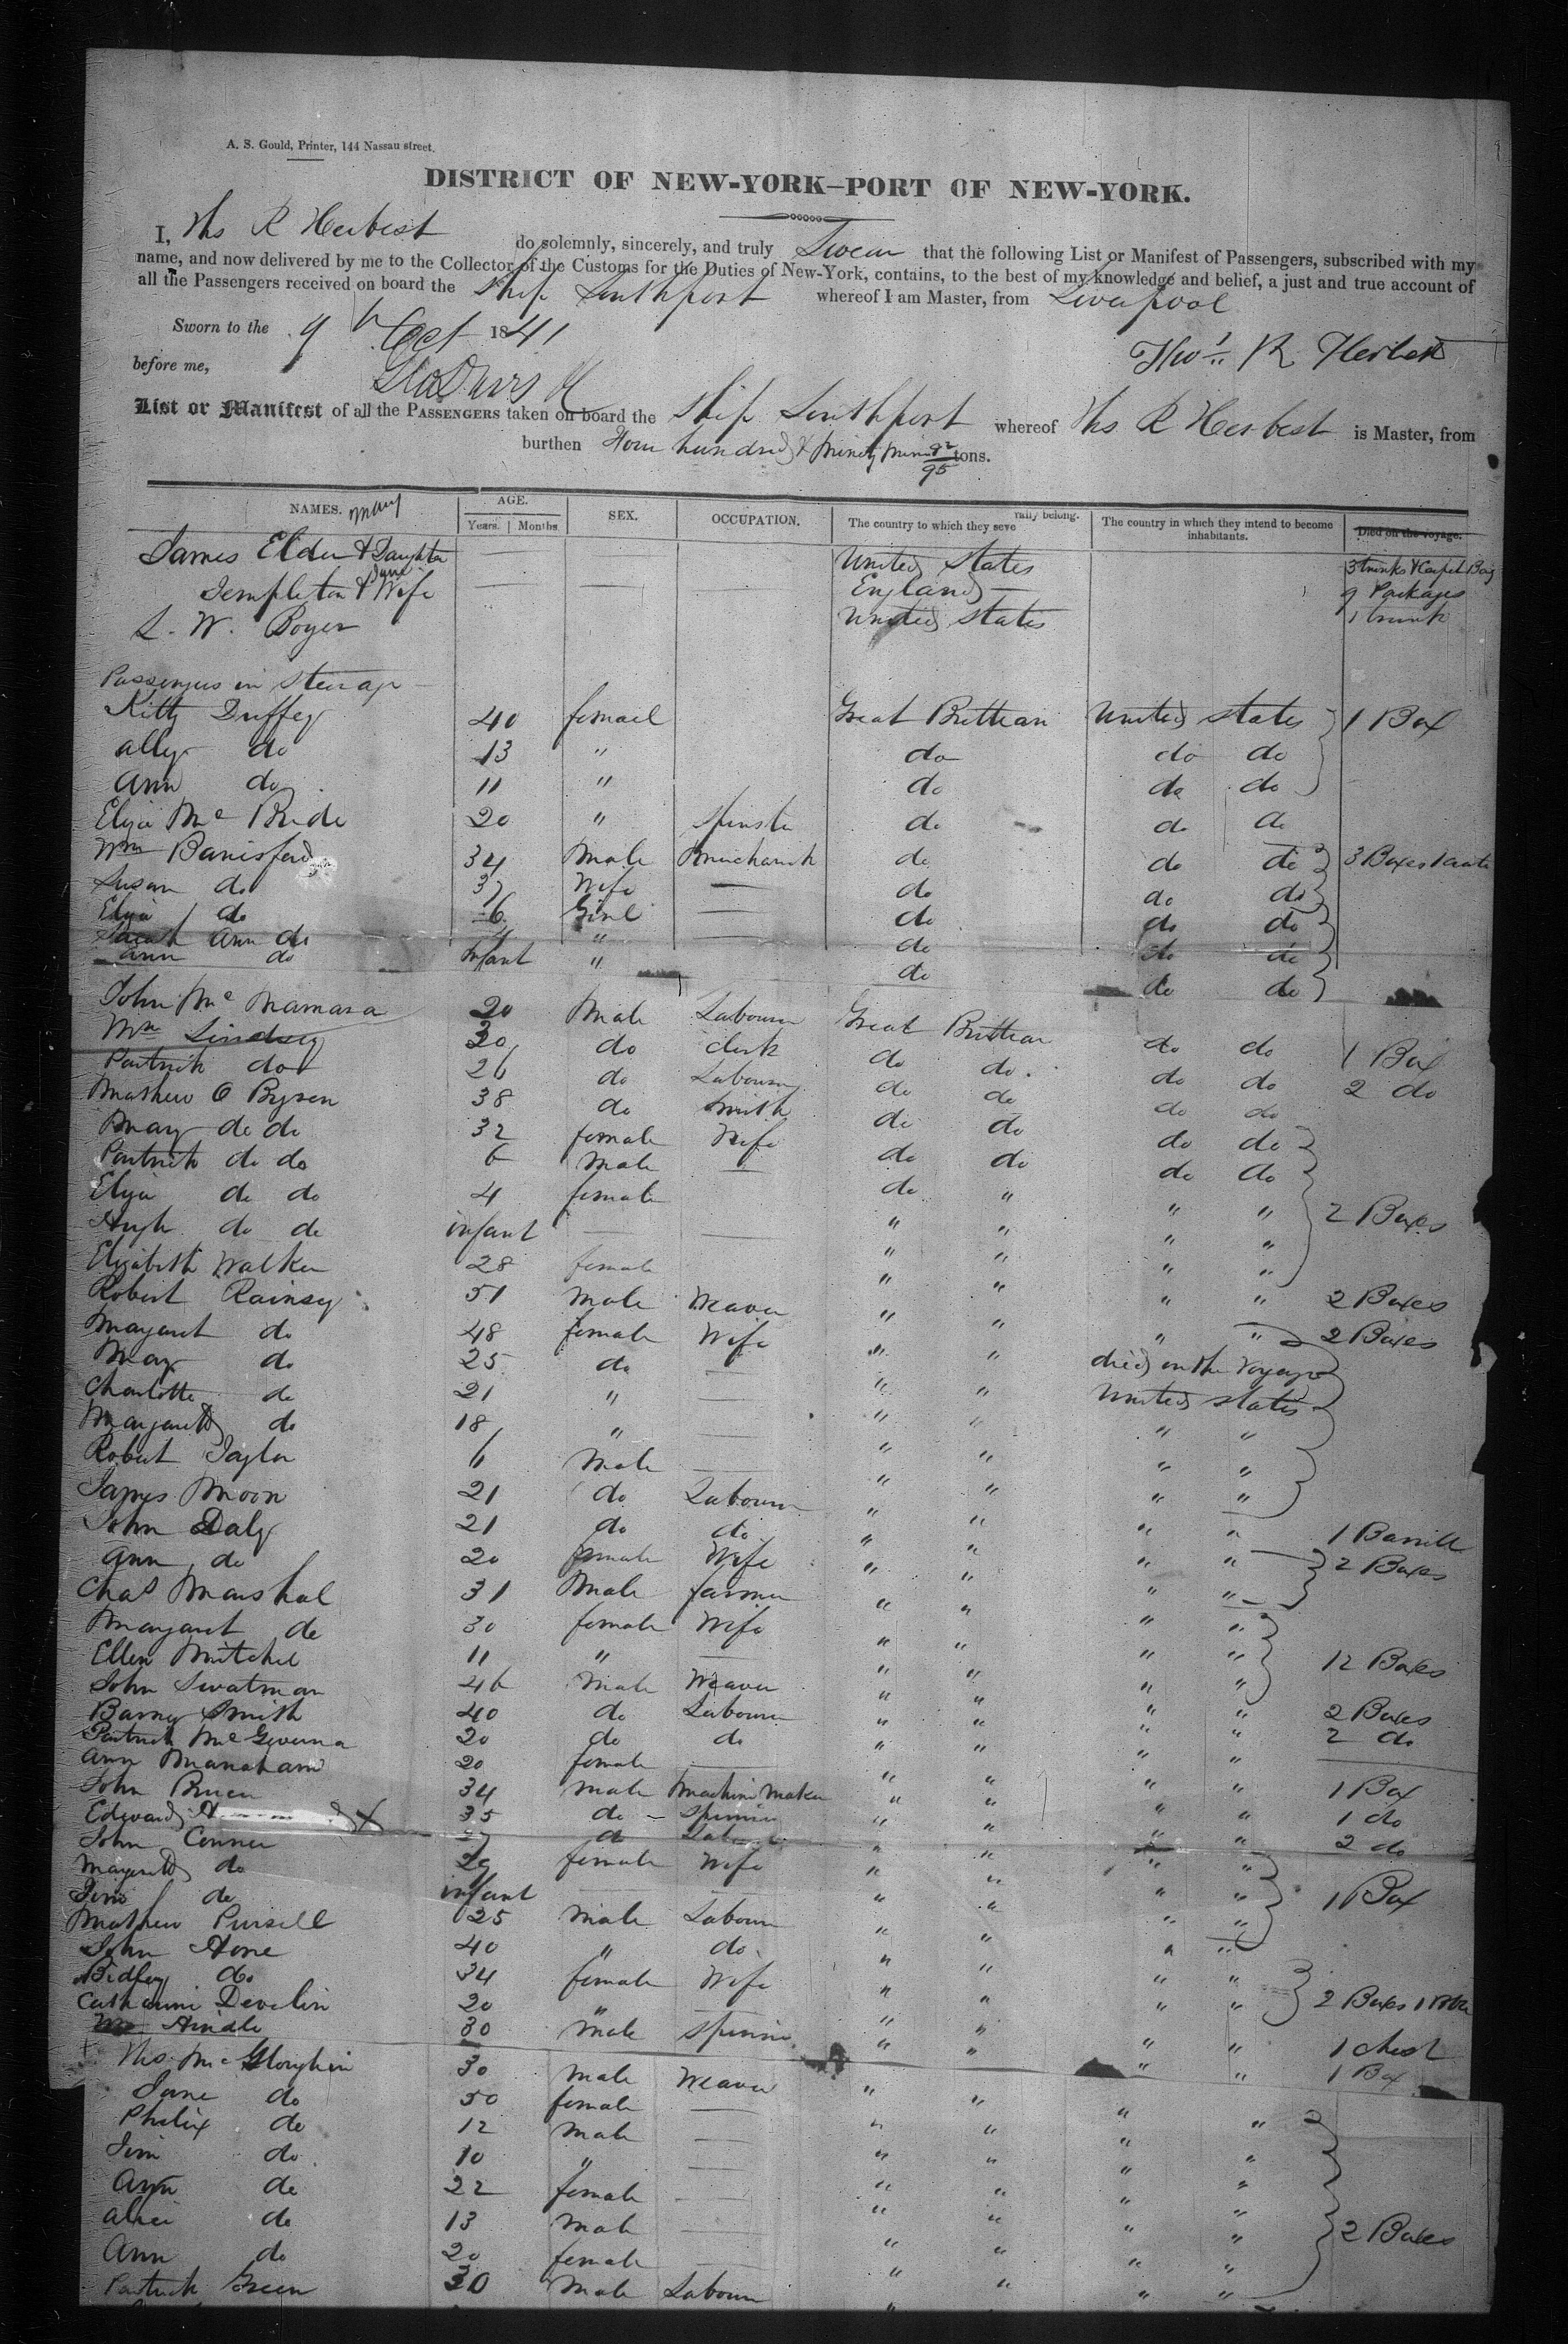 A. S. Gould, Printer, 144 Nassau street.
DISTRICT OF NEW-YORK—PORT OF NEW-YORK.
I, Ths R Herbest do solemnly, sincerely, and truly Swear that the following List or Manifest of Passengers, subscribed with my
name, and now delivered by me to the Collector of the Customs for the Duties of New-York, contains, to the best of my knowledge and belief, a just and true account of
all the Passengers received on board the Ship Southport whereof I am Master, from Liverpool
Sworn to the 9 Oct 1841
Thos. R. Herbest
before me,
Geo Davis
List or Manifest of all the PASSENGERS taken on board the Ship Southport whereof Ths R Herbest is Master, from
burthen Four hundred & Ninety Nine 92/95 tons.
NAMES. AGE. SEX. OCCUPATION. The country to which they severally belong. The country in which they intend to become inhabitants. Died on the voyage.
Years. Months
Mary
James Elder & Daughter United States 3 trunks & Carpet Bag
Jane
Templeton & Wife England 9 Packages
S. W. Boyer United States 1 trunk
Passengers in Steirage
Kitty Duffey 40 femael Great Brittian United States 1 Box
Ally do 13 " do do do
Ann do 11 " do do do
Eliza Mc Bride 20 " Spinster do do do
Wm Banisford 34 Male do do do 3 Boxes
Susan do 37 Wife do do do
Eliza do 6 Girl do do do
Sarah Ann do " do do do
Ann do infant " do do do
John Mc Namara 20 Male Labourer Great Brittian do do 1 Box
Wm Lindsey 20 do Clerk do do do do 2 do
Patrick do 26 do Labourer do do do do
Mathew O Bysen 38 do Smith do do do do
Mary do do 32 female Wife do do do do
Patrick do do 6 Male do " " "
Eliza do do 4 female " " " " 2 Boxes
Hugh do do infant " " " "
Elizabeth Walker 28 female " " " " 2 Boxes
Robert Rainsey 51 Male Weaver " " " " 2 Boxes
Margaret do 48 female Wife " " died on the Voyage
Mary do 25 do " " United States
Charlotte do 21 " " " " "
Margarett do 18 " " " " "
Robert Taylor 6 Male " " " "
James Moon 21 do Labourer " " " " 1 Barrill
John Daly 21 do do " " " " 2 Boxes
Ann do 20 female Wife " " " "
Chas Marshal 31 Male farmer " " " "
Margaret do 30 female Wife " " " " 12 Boxes
Ellen Mitchel 11 " " " " "
John Swatman 46 Male Weaver " " " " 2 Boxes
Barney Smith 40 do Labourer " " " " 2 do
Patrick Mc Governa 20 do do " " " "
Ann Manaham 20 female " " " " 1 Box
John Bruen 34 Male Machine Maker " " " " 1 do
Edward 35 do Spinner " " " " 2 do
John Conner 27 do " " " "
Margarett do 29 female Wife " " " " 1 Box
do infant " " " "
Mathew Pursell 25 Male Labourer " " " "
John Hone 40 " do " " " "
do 34 female Wife " " " " 2 Boxes 1
Catharine Develin 20 " " " " "
Hindle 30 Male Spinner " " " " 1 Chest
Ths. Mc Gloughin 30 Male Weaver " " " " 1 Box
Jane do 50 female " " " "
Phelix do 12 Male " " " "
Jim do 10 " " " " "
Ann do 22 female " " " "
Alice do 13 Male " " " " 2 Boxes
Ann do 20 female " " " "
Patrick Green 30 Male Labourer " " " "